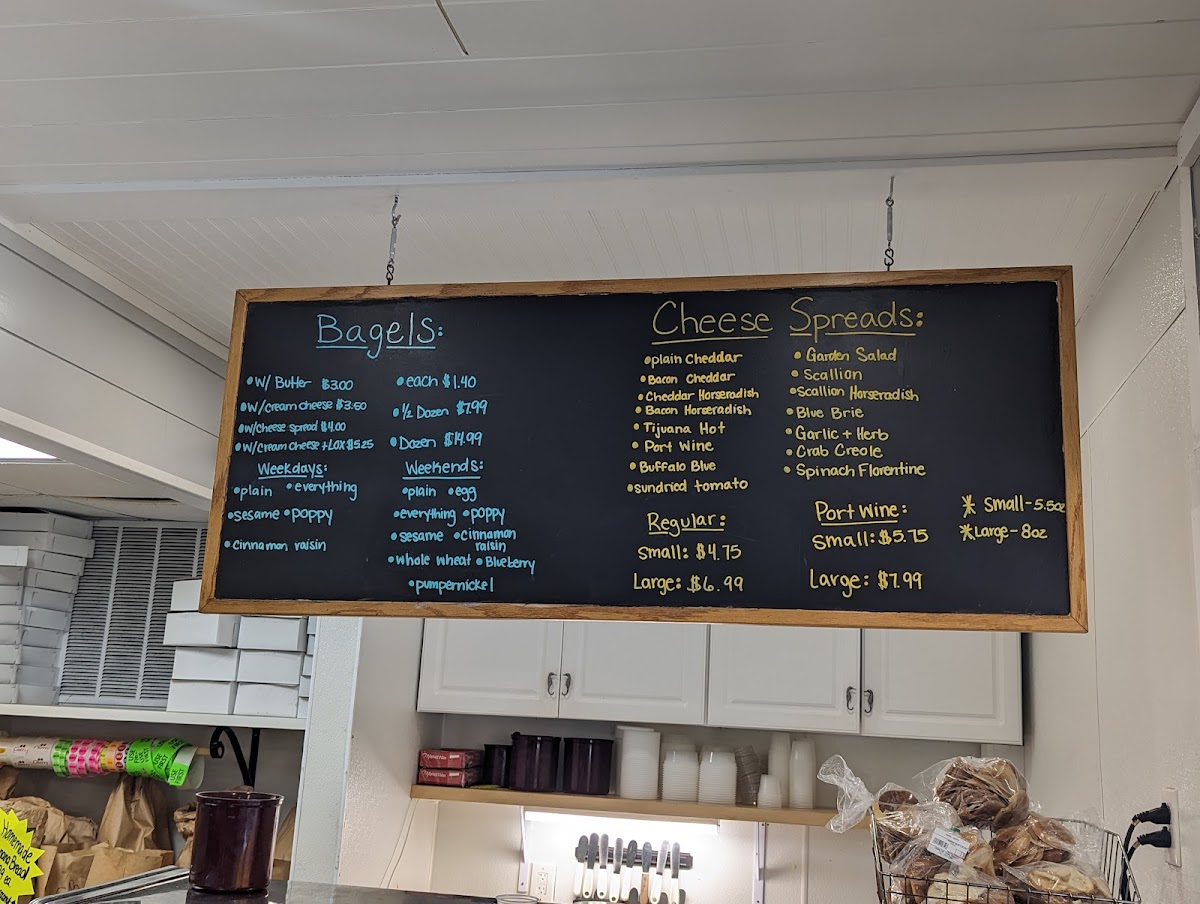 Bagels:
• W/ Butter $3.00
• W/cream cheese $3.50
• W/cheese spread $4.00
• W/cream cheese + Lox $5.25
• each $1.40
• 1/2 Dozen $7.99
• Dozen $14.99
Weekdays:
• plain • everything
• sesame • poppy
• cinnamon raisin
Weekends:
• plain • egg
• everything • poppy
• sesame • cinnamon
raisin
• whole wheat • Blueberry
• pumpernickel
Cheese Spreads:
• plain Cheddar
• Bacon Cheddar
• Cheddar Horseradish
• Bacon Horseradish
• Tijuana Hot
• Port Wine
• Buffalo Blue
• sundried tomato
• Garden Salad
• Scallion
• Scallion Horseradish
• Blue Brie
• Garlic + Herb
• Crab Creole
• Spinach Florentine
Regular:
Small: $4.75
Large: $6.99
Port Wine:
Small: $5.75
Large: $7.99
* Small - 5.5oz
* Large - 8oz
Homemade